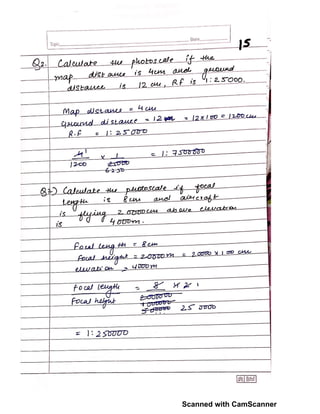 Date
15
Q2. Calculate the photoscale if the
map distance is 4cm and ground
distance is 12 cm, R.F is 1:25000.
Map distance = 4 cm
Ground distance = 12 = 12x100 = 1200 cm
R.F = 1: 25000
4 x 1 = 1: 7500000
1200 25000
6250
Q3) Calculate the photoscale if focal
length is 8cm and aircraft
is flying 20000cm above elevation
is 4000m.
Focal length = 8cm
Focal height = 20000m = 20000 x 100 cm
elevation = 4000m
Focal length = 8 x 2 1
Focal height 2000000
25000
= 1:250000
Scanned with CamScanner